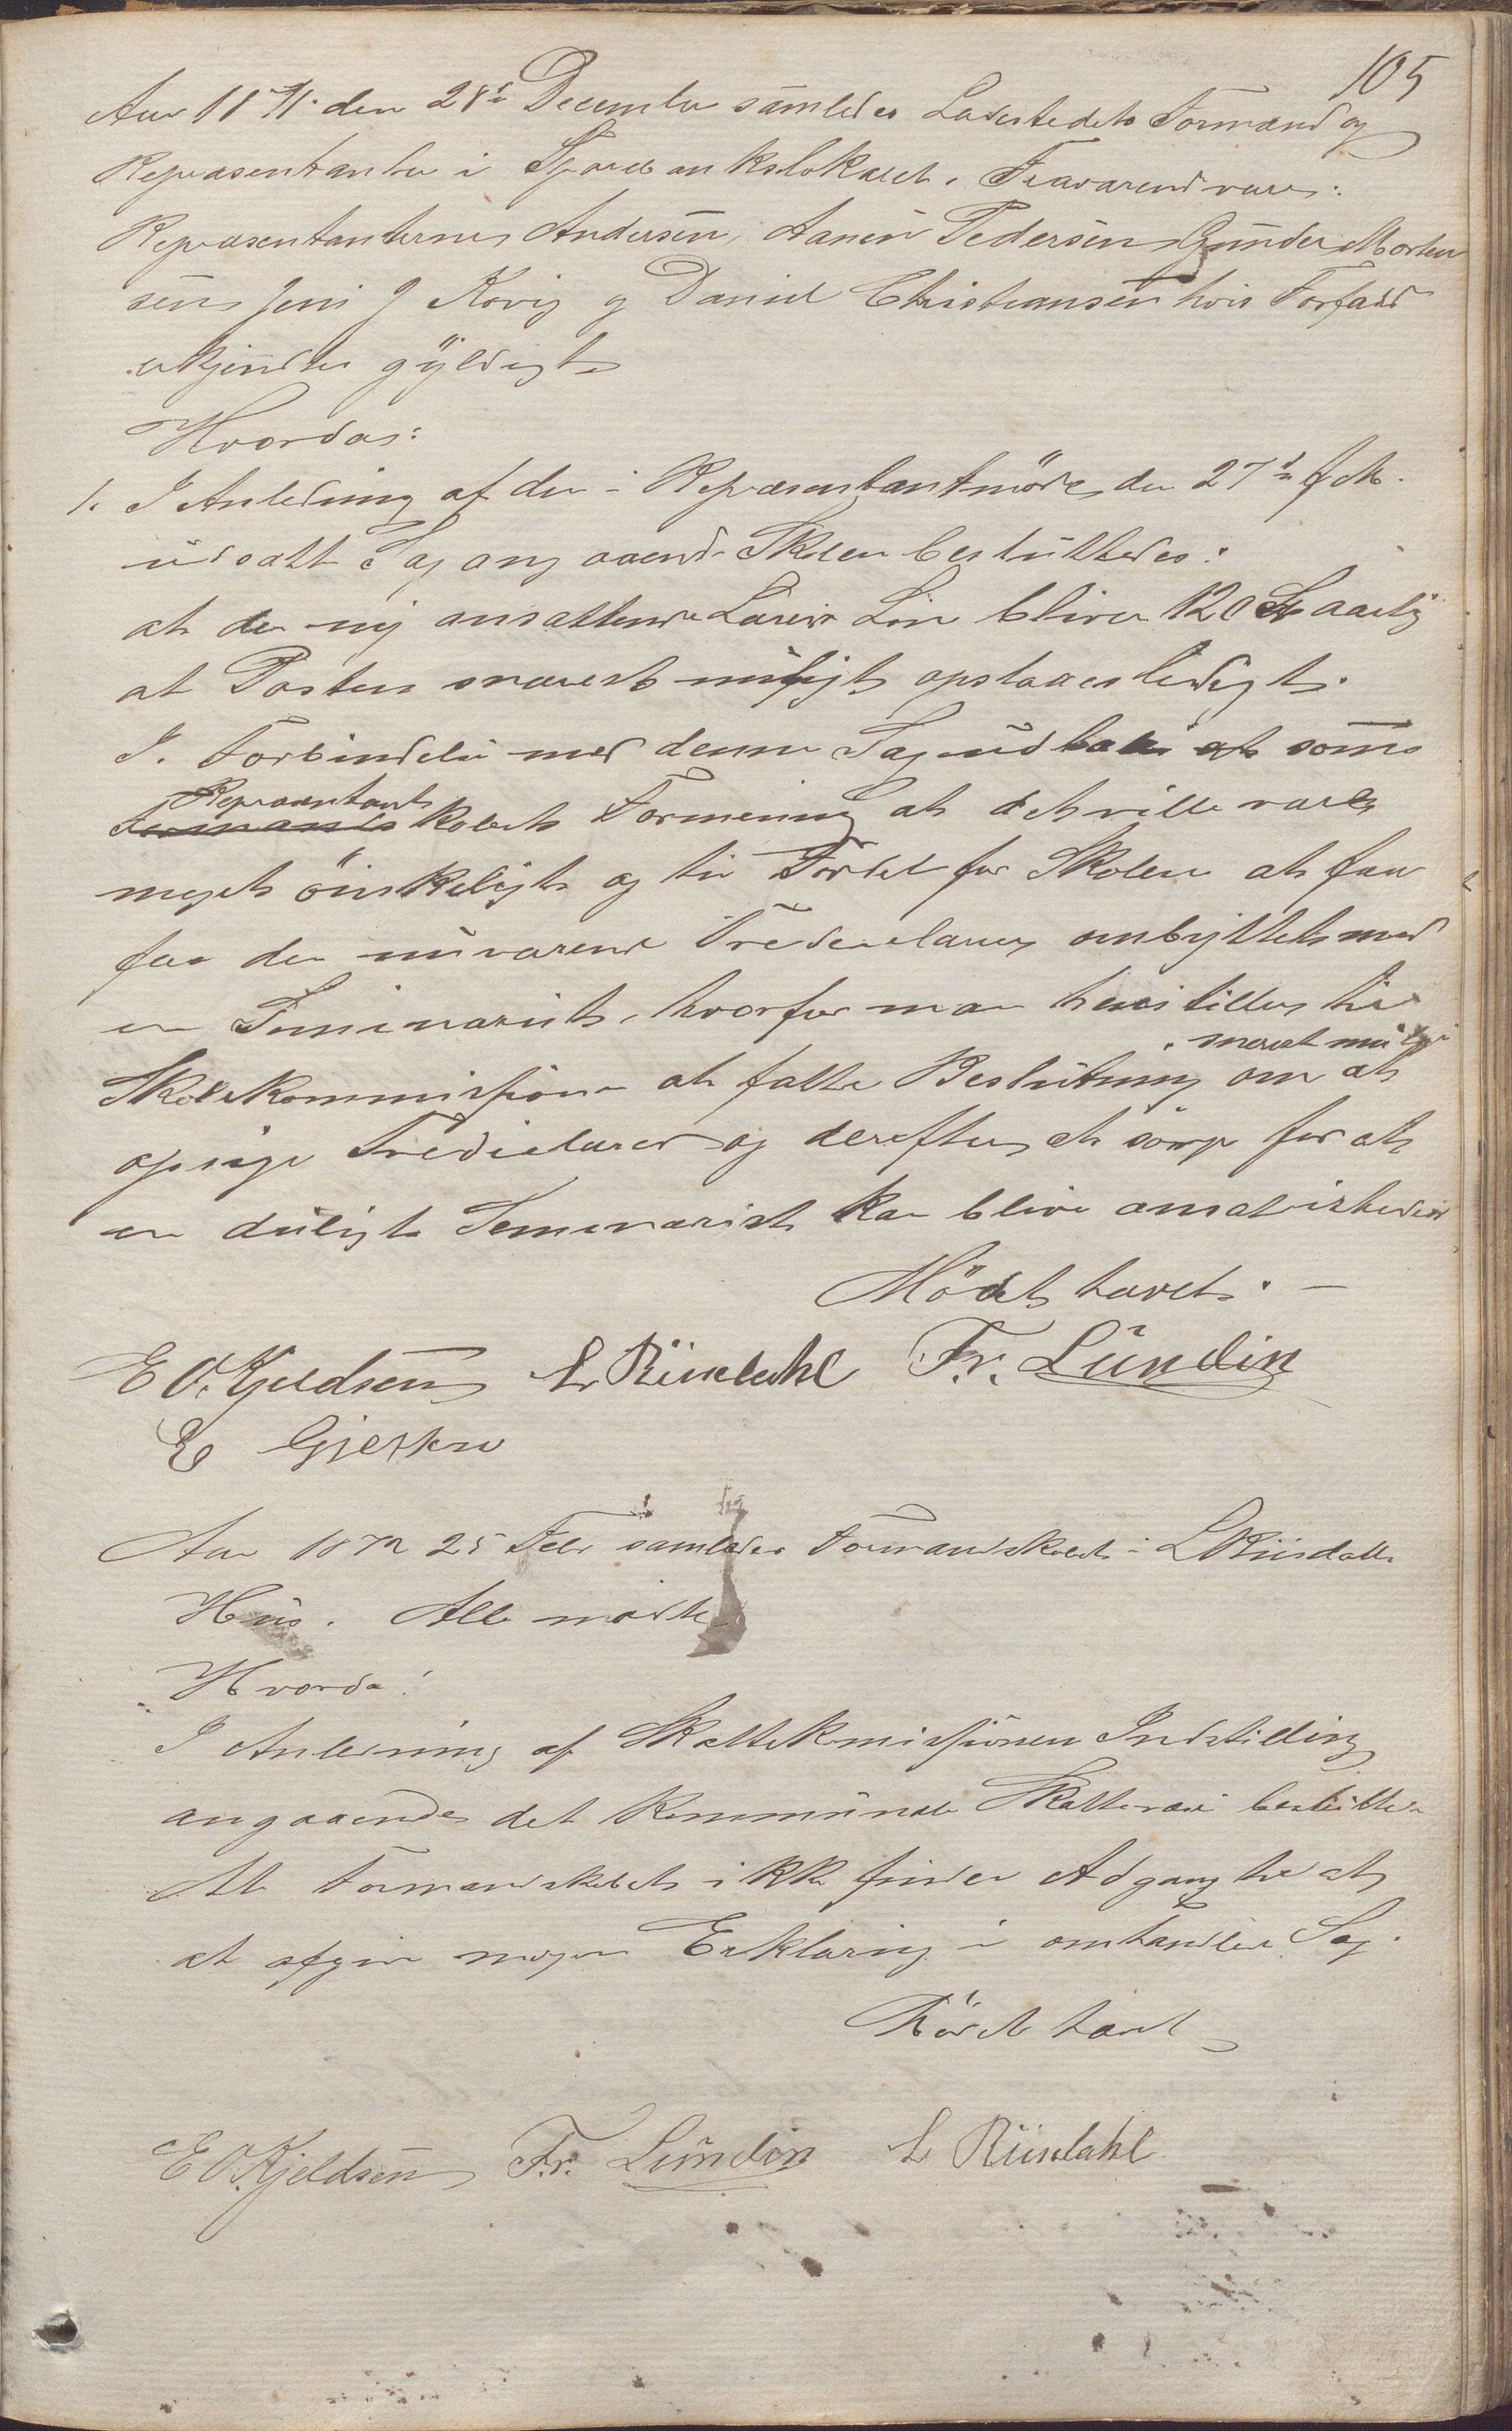 105
Aar 1871 den 28de December samledes Ladestedets Formænd og
Repræsentanter i Sparebankslokalet. Fraværende vare:
Repræsentanterne Andersen, Aanen Pedersen, Gunder Morten
sen, Jens J Kovig og Daniel Christiansen hvis Forfald
erkjendtes gyldigt
Hvorda:
1. I Anledning af den i Repræsentantmøde den 27de f. M.
udsatte Sag angaaende Skolen besluttedes:
at den ny ansættende Lærers Løn bliver 120 Spd aarlig
at Posten snarest muligt opslaaes ledigt.
I Forbindelse med denne Sag udtales at som
Repræsentant
Formandskabets Formening at det ville være
meget ønskeligt og til Fordel for Skolen at faa
faa den nuværende Tredielærer ombyttet med
en Seminarist, hvorfor man henstiller til
snarest mulig
Skolekommissionen at fatte Beslutning om at
opsige Tredielærer og derefter at sørge for at
en duelig Seminarist kan blive ansat istedet
Mødet hævet. –
E O. Kjeldsen L Riisdahl Fr. Lundin
E Gjertsen
Aar 1872 25 Febr samledes Formandskabet i L Riisdahls
Hus. Alle mødte
Hvorda:
I Anledning af Skattekommissionen Indstilling
angaaende det kommunale Skattevæsen besluttedes
At Formandskabet ikke finder Adgang til at
at afgive nogen Erklæring i omhandlede Sag.
Mødet hævet
E O. Kjeldsen Fr. Lundin L Riisdahl